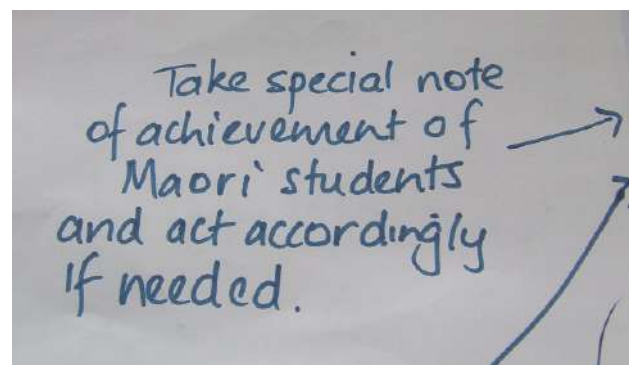 Take special note
of achievement of
Maori students
and act accordingly
If needed.